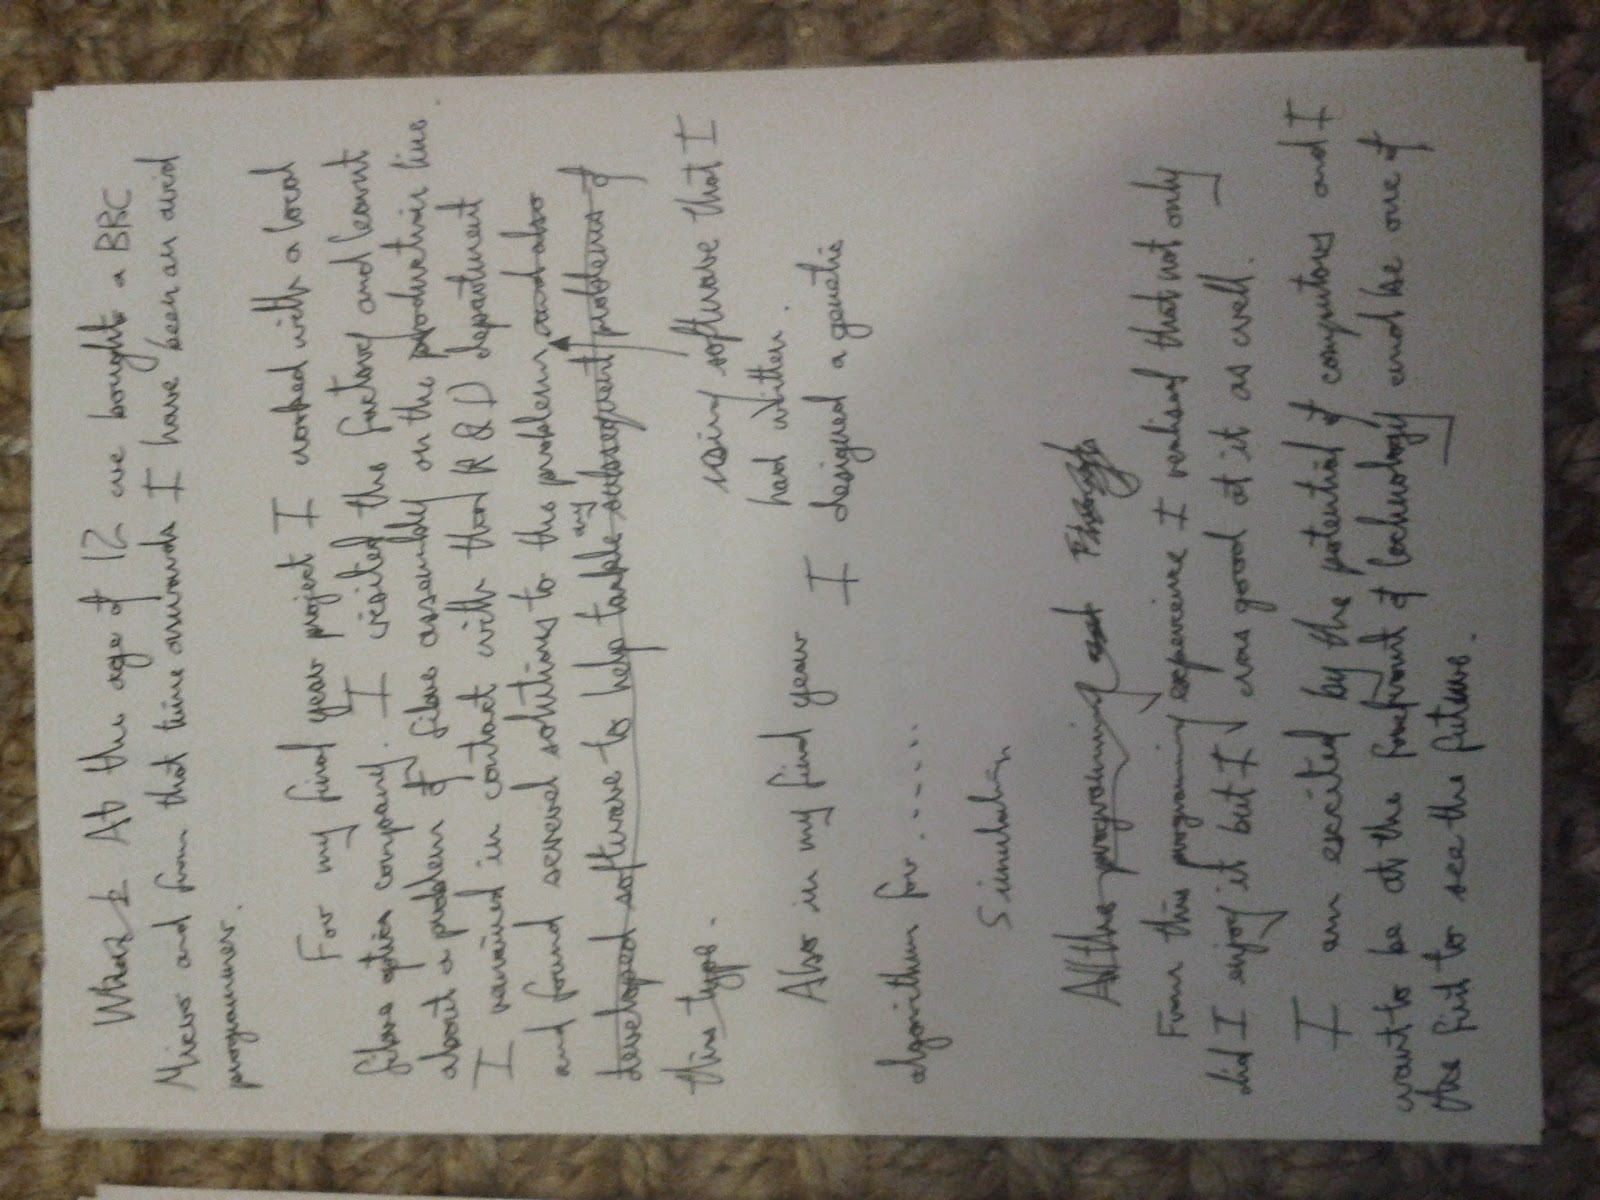 When I At the age of 12 we bought a BBC
Micro and from that time onwards I have been an avid
programmer.
For my final year project I worked with a local
fibre optics company. I visited the factory and learnt
about a problem of fibre assembly on the production line.
I remained in contact with their R & D department
and found several solutions to the problem and also
developed software to help tackle any subsequent problems of
this type.
using software that I
had written.
Also in my final year I designed a genetic
algorithm for . . . . . .
Simulation
All this programming and Through
From this programming experience I realised that not only
did I enjoy it but I was good at it as well.
I am excited by the potential of computers and I
want to be at the forefront of technology and be one of
the first to see the future.